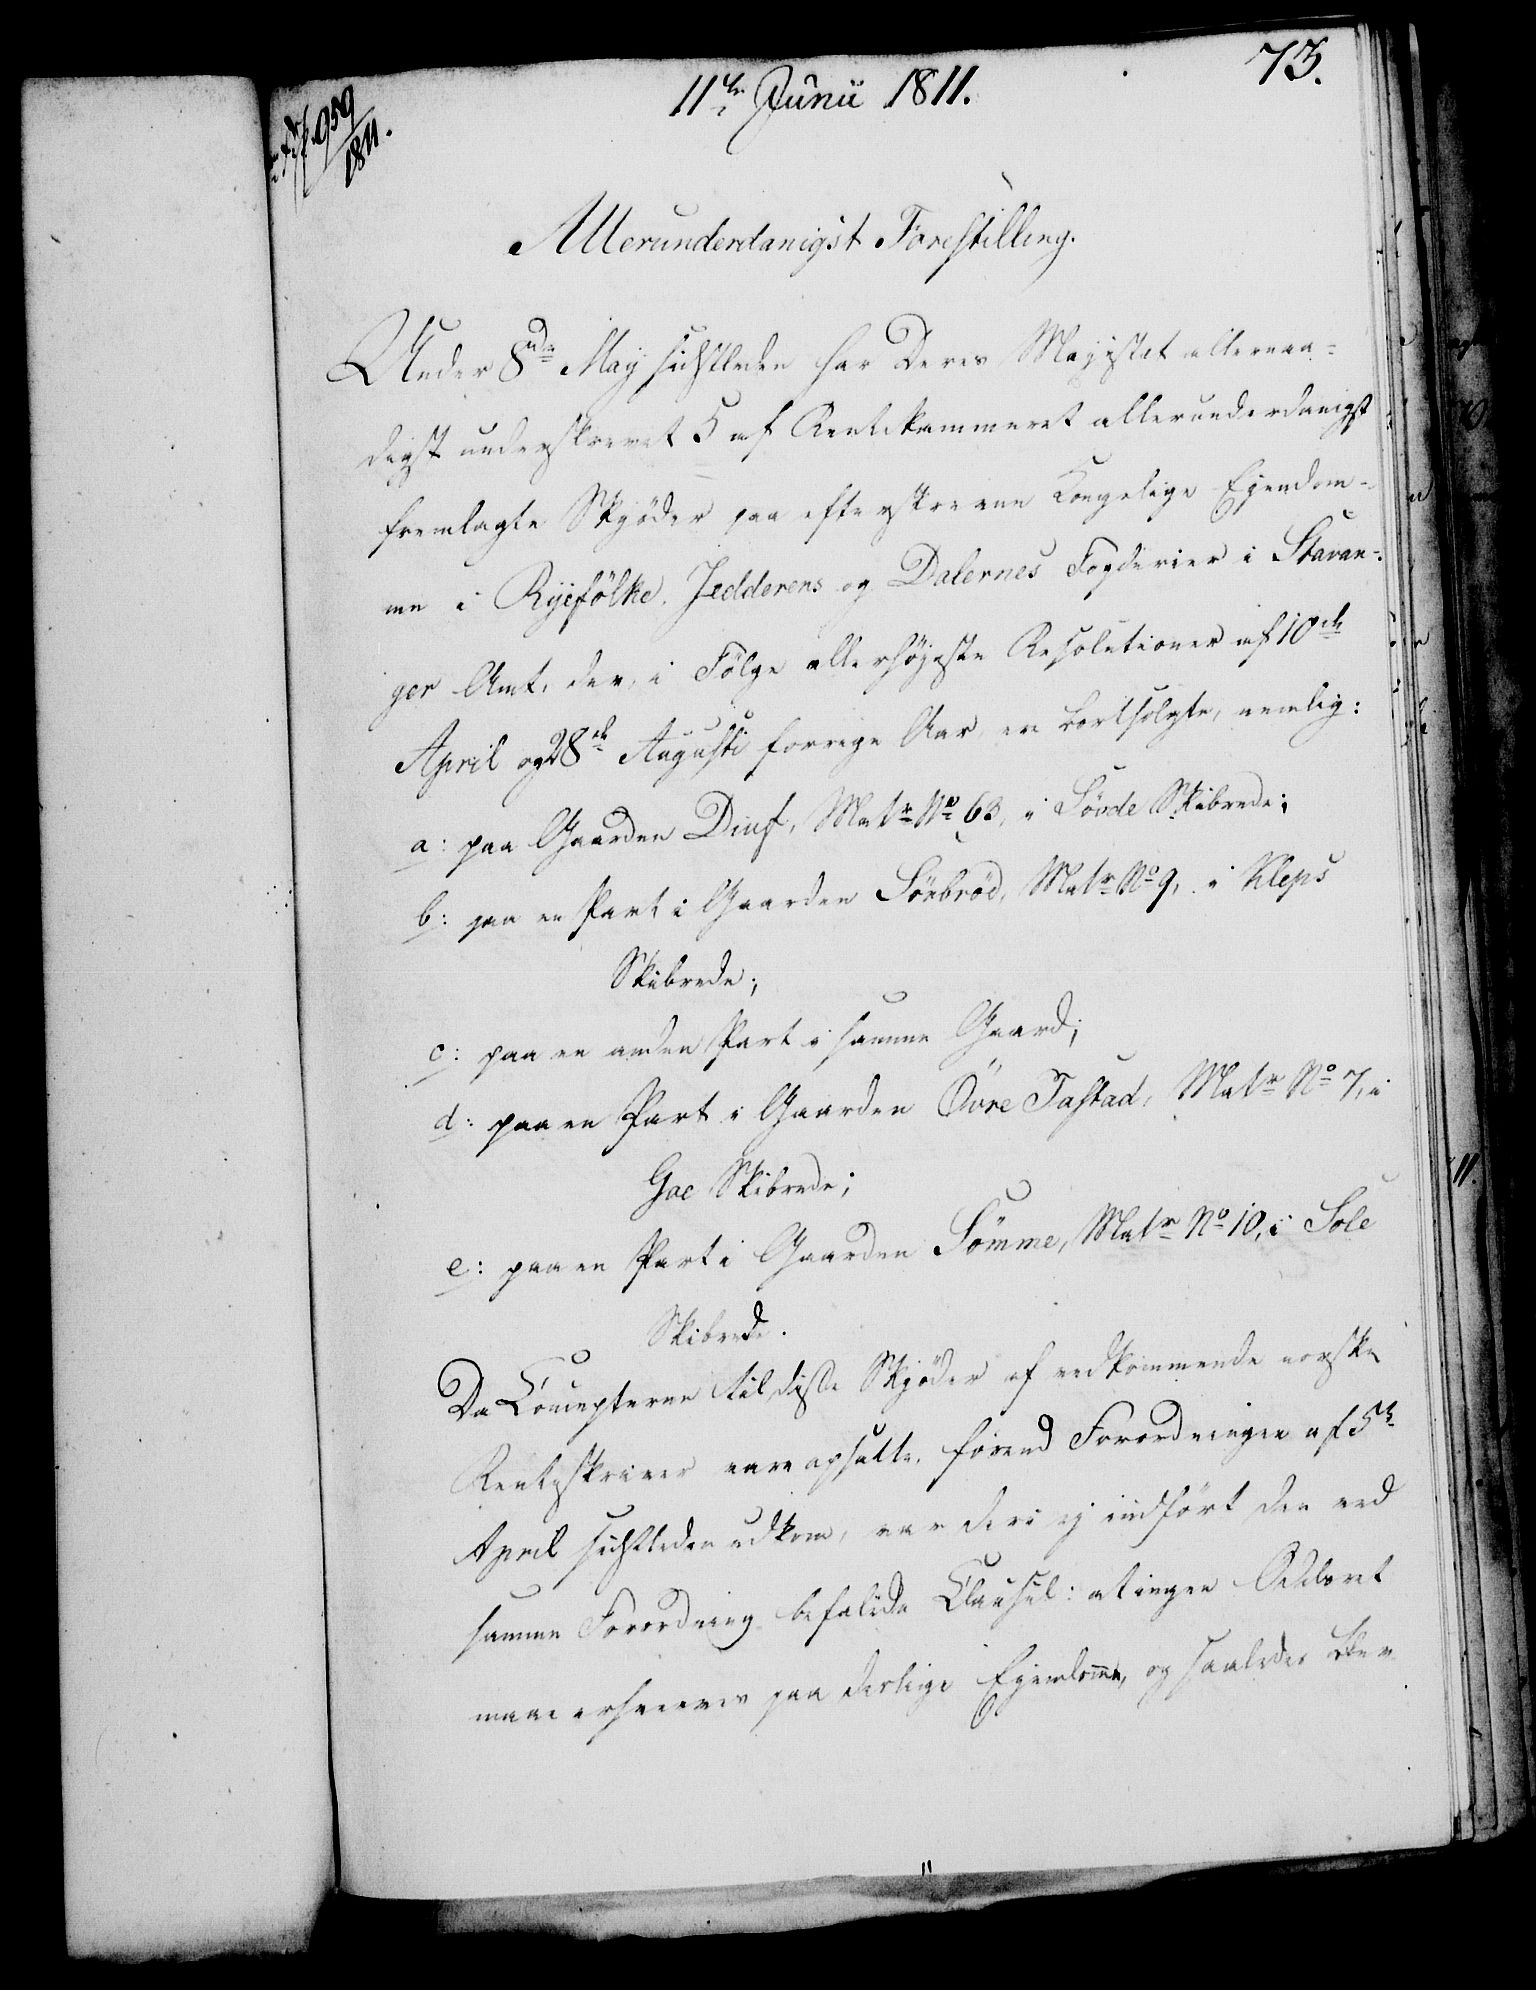 11te Junii 1811.
73.
959
1811.
Allerunderdanigst Forestilling.
Under 8de May sidstleden har Deres Majestet allernaa-
digst underskrevet 5 af Rentekammeret allerunderdanigst
fremlagte Skjöder paa efterskrevne Kongelige Ejendom-
me i Ryefölke, Jedderens og Dalernes Fogderier i Stavan-
ger Amt, der, i Fölge allerhöjeste Resolutioner af 10de
April og 28de Augusti forrige Aar, ere bortsolgte, nemlig:
a: paa Gaarden Diuf, Matr No 63, i Sövde Skibrede;
b: paa en Part i Gaarden Sörbröd, Matr No 9, i Kleps
Skibrede;
c: paa en anden Part i samme Gaard;
d: paa en Part i Gaarden Övre Tastad, Matr No 7, i
Goe Skibrede;
e: paa en Part i Gaarden Sömme, Matr No 10, i Sole
Skibrede.
Da Concepterne til disse Skjöder af vedkommende norske
Renteskriver vare opsatte, förend Forordningen af 5te
April sidstleden udkom, var deri ej indfört den ved
samme Forordning befalede Clausul: at ingen Odelsret
maae erhverves paa deslige Ejendomme, og saaledes blev